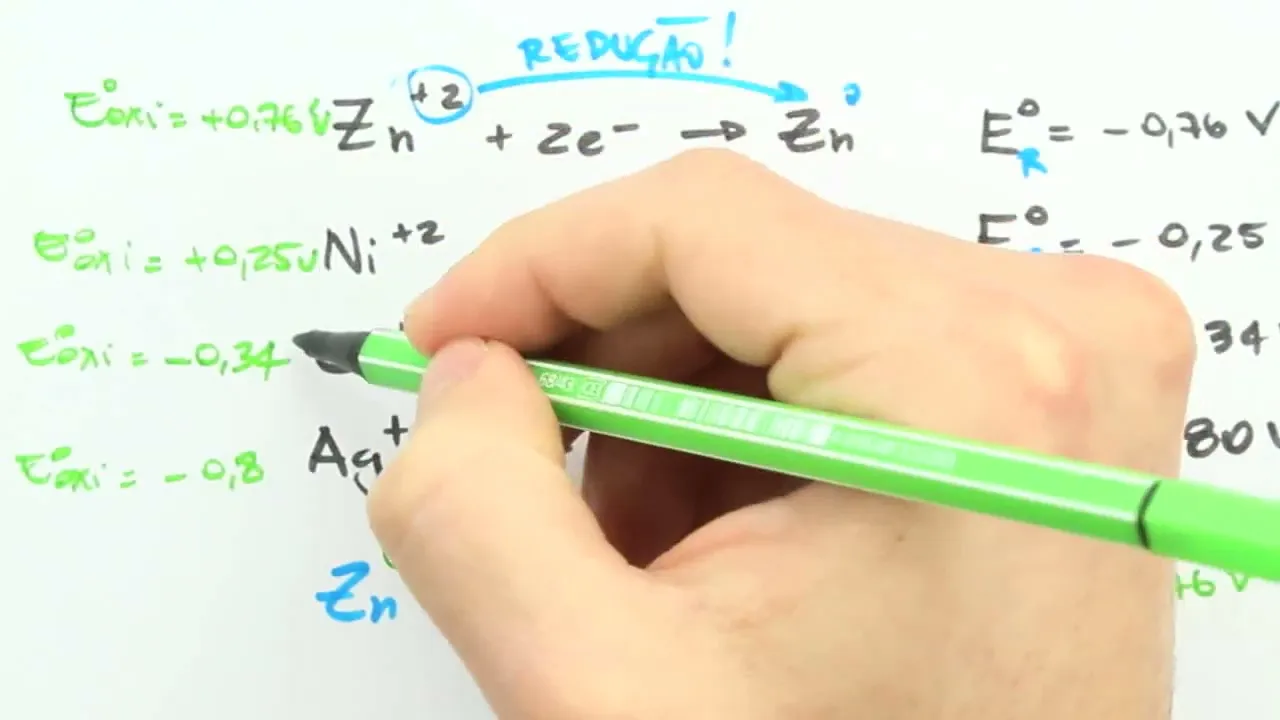 REDUÇÃO!
E°oxi = +0,76V Zn+2 + 2e- → Zn° E°R = -0,76 V
E°oxi = +0,25V Ni+2 E° = -0,25
E°oxi = -0,34 34
E°oxi = -0,8 Ag+ 80V
Zn +6 V